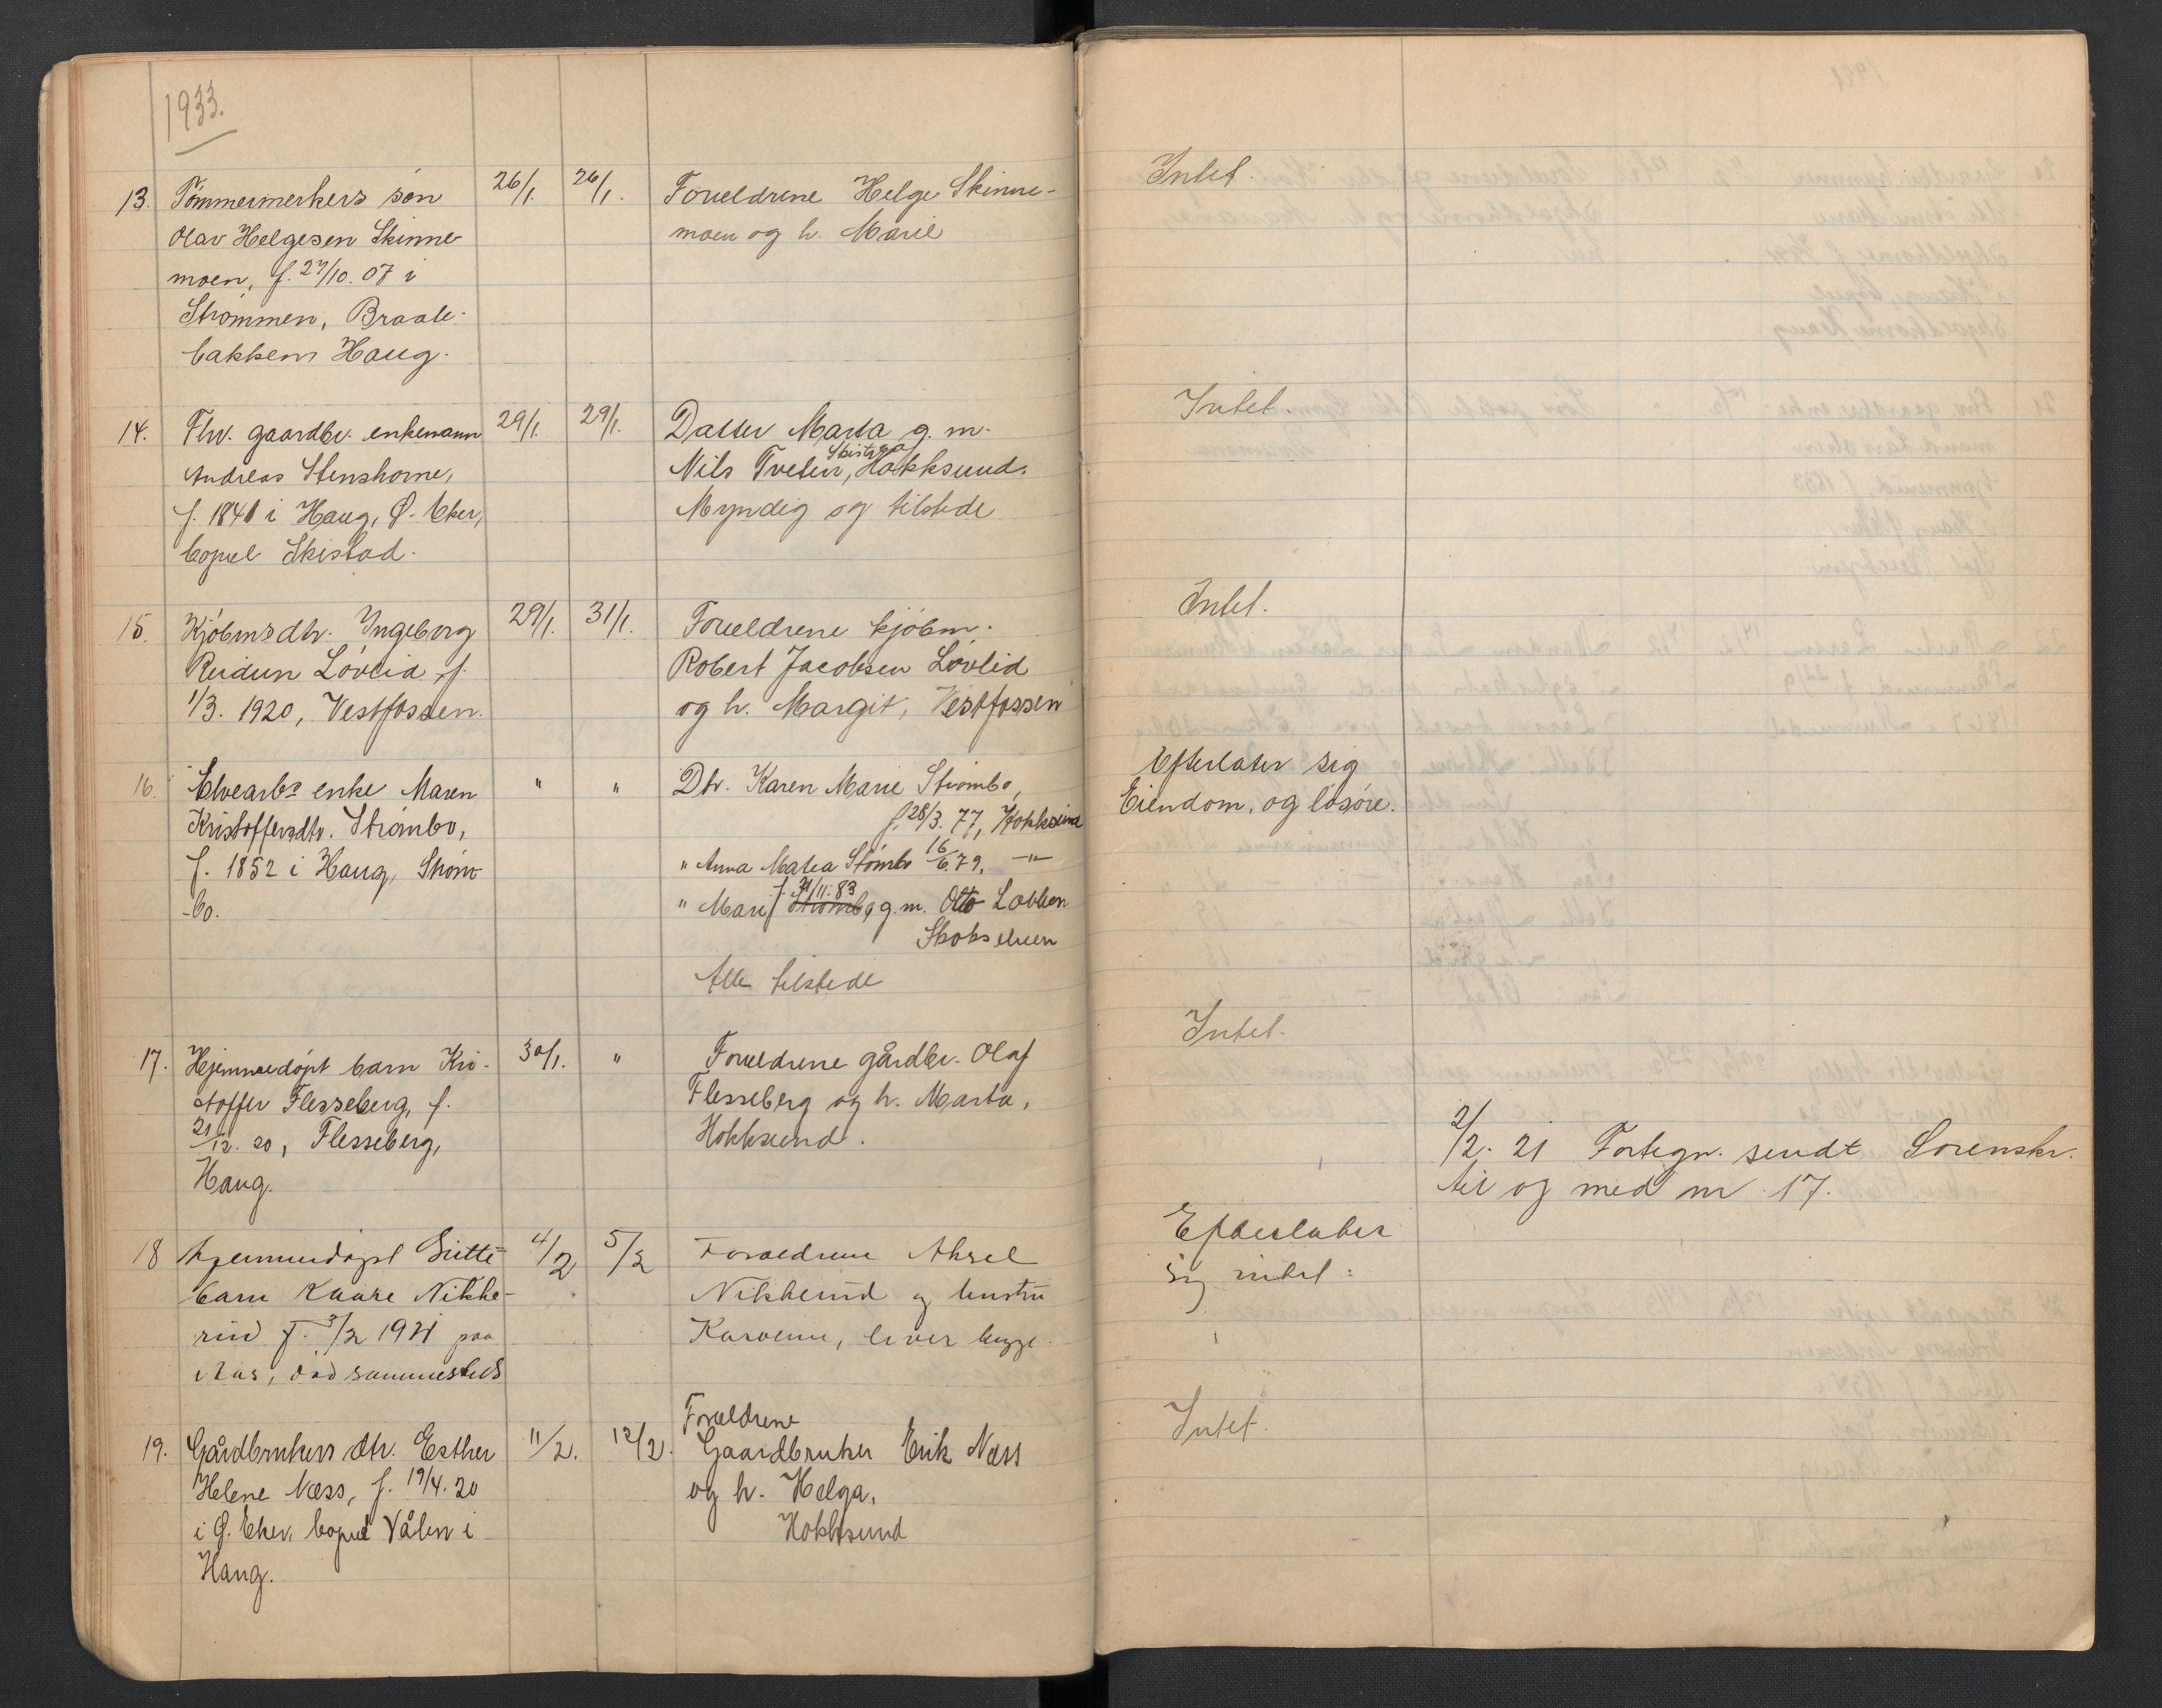 1933.
13. Tømmermerkers søn 26/1. 26/1. Forældrene Helge Skinne- Intet.
Olav Helgesen Skinne- moen og h. Marie
moen, f. 27/10. 07 i
Strømmen, Braate-
bakken Haug.
14. Fhv. gaardbr. enkemann 29/1. 29/1. Datter Marta g. m. Intet.
Andreas Stenshorne, Nils Tveten, Skistad Hokksund.
f. 1841 i Haug, Ø. Eker, Myndig og tilstede
bopæl Skistad.
15. Kjøbmsdtr. Ingeborg 29/1. 31/1. Forældrene kjøbm. Intet.
Reidun Løvlid f. Robert Jacobsen Løvlid
1/3. 1920, Vestfossen. og h. Margit, Vestfossen
16. Elvearbs enke Maren " " Dtr. Karen Marie Strømbo, Efterlater sig
Kristoffersdtr. Strømbo, f. 28/3. 77, Hokksund Eiendom, og løsøre.
f. 1852 i Haug, Strøm- " Anna Matea Strømbo 16/6. 79. —"—
-bo. " Mari f. 21/11. 83 Strømbo g. m. Otto Løkken
Skotselven
Alle tilstede
17. Hjemmedøpt barn Kri- 30/1. " Forældrene gårdbr. Olaf Intet.
stoffer Flesseberg, f. Flesseberg og h. Marta,
21/12. 20, Flesseberg, Hokksund.
Haug.
2/2. 21 Fortegn. sendt Sorenskr.
til og med nr. 17.
18 hjemmedøpt Gutte- 4/2 5/2 Forældrene Aksel Efterlater
barn Kaare Nikke- Nikkerud og hustru sig intet:
rud f. 3/2 1921 paa Karoline, lever begge.
Aas, død sammesteds
19. Gårdbrukers dtr. Esther 11/2. 12/2. Forældrene Intet.
Helene Næss, f. 19/4. 20 Gaardbruker Erik Næss
i Ø. Eker, bopæl Vålen i og h. Helga,
Haug. Hokksund